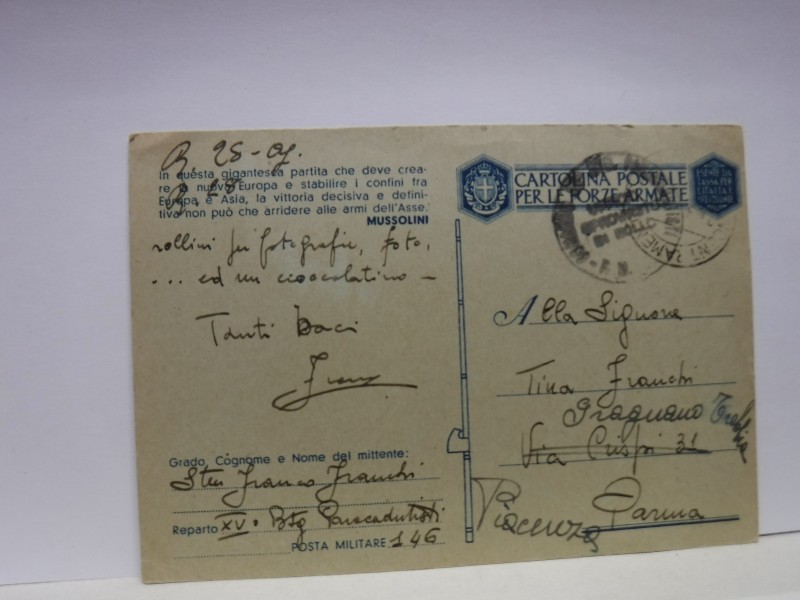 R. 25-
In questa gigantesca partita che deve crea-
re la nuova Europa e stabilire i confini fra
Europa e Asia, la vittoria decisiva e defini-
tiva non può che arridere alle armi dell'Asse.
MUSSOLINI
rollini per fotografie, foto,
... ed un cioccolatino -
Tanti baci
Grado, Cognome e Nome del mittente:
Sten Franco Franchi
Reparto XV° Btg Paracadutisti
POSTA MILITARE 146
CARTOLINA POSTALE
PER LE FORZE ARMATE
Alla Signora
Tina Franchi
Gragnano Trebbia
Via Crispi 31
Parma
Piacenza